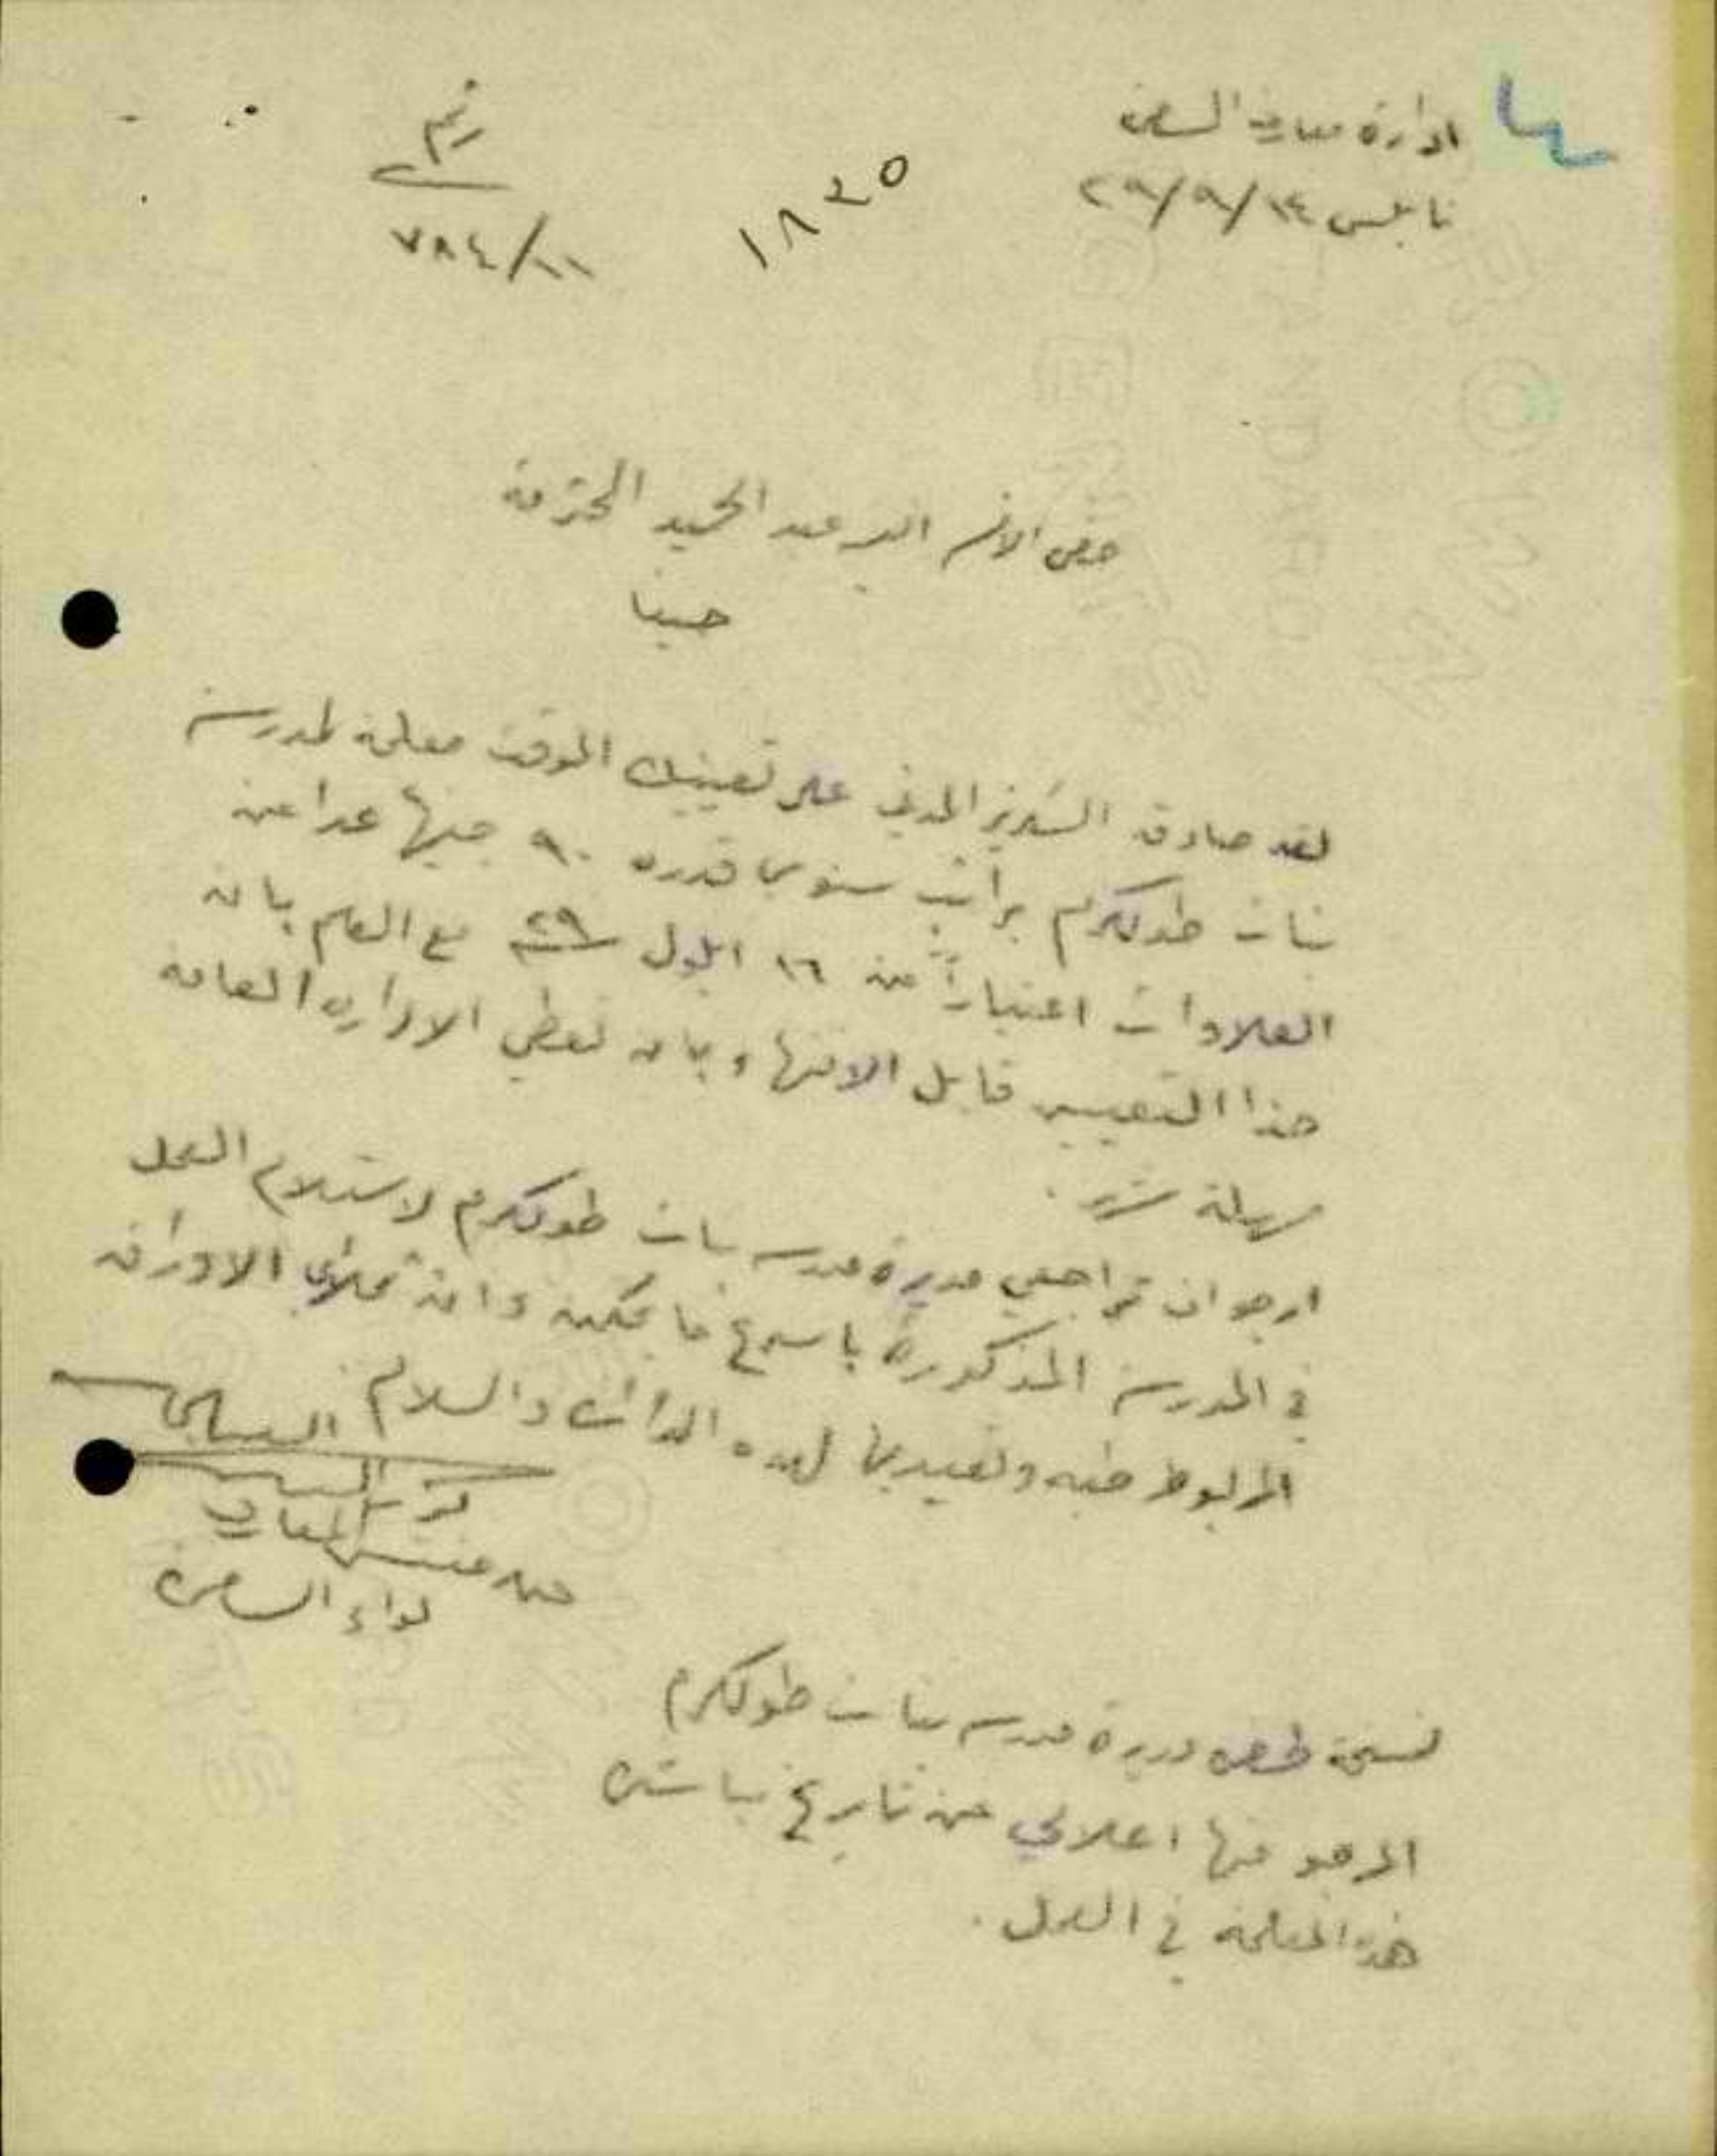 ادارة معارف السامرة
نابلس ١٤/٩/٢٩
رقم
٧٨٤/١١
١٨٢٥
حضرة الانسة عبد الحميد المحترمة
حيفا
لقد صادق السكرتير المدني على تعيينك الموقت معلمة لمدرسة
بنات طولكرم براتب سنوي قدره ٩٠ جنيها عدا عن
العلاوات اعتباراً من ١٦ ايلول ٢٩ مع العلم بان
هذا التعيين قابل الانتهاء بان تعطي الادارة العامة
مهلة شهر.
ارجو ان تراجعي مديرة مدرسة بنات طولكرم لاستلام العمل
في المدرسة المذكورة باسرع ما يمكن وان تملأي الاوراق
المربوطة وتعيديها لهذه الدائرة والسلام
المعارف
لواء السامرة
نسخة لحضرة مديرة مدرسة بنات طولكرم
المرجو منها اعلامي عن تاريخ مباشرة
هذه المعلمة في العمل.